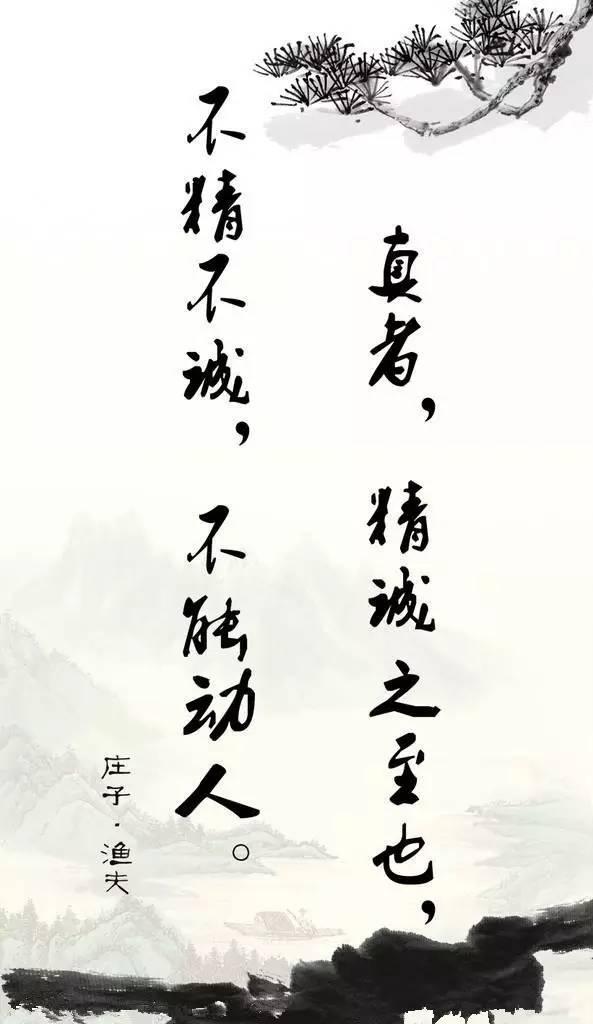 真者，精诚之至也，
不精不诚，不能动人。
庄子·渔夫